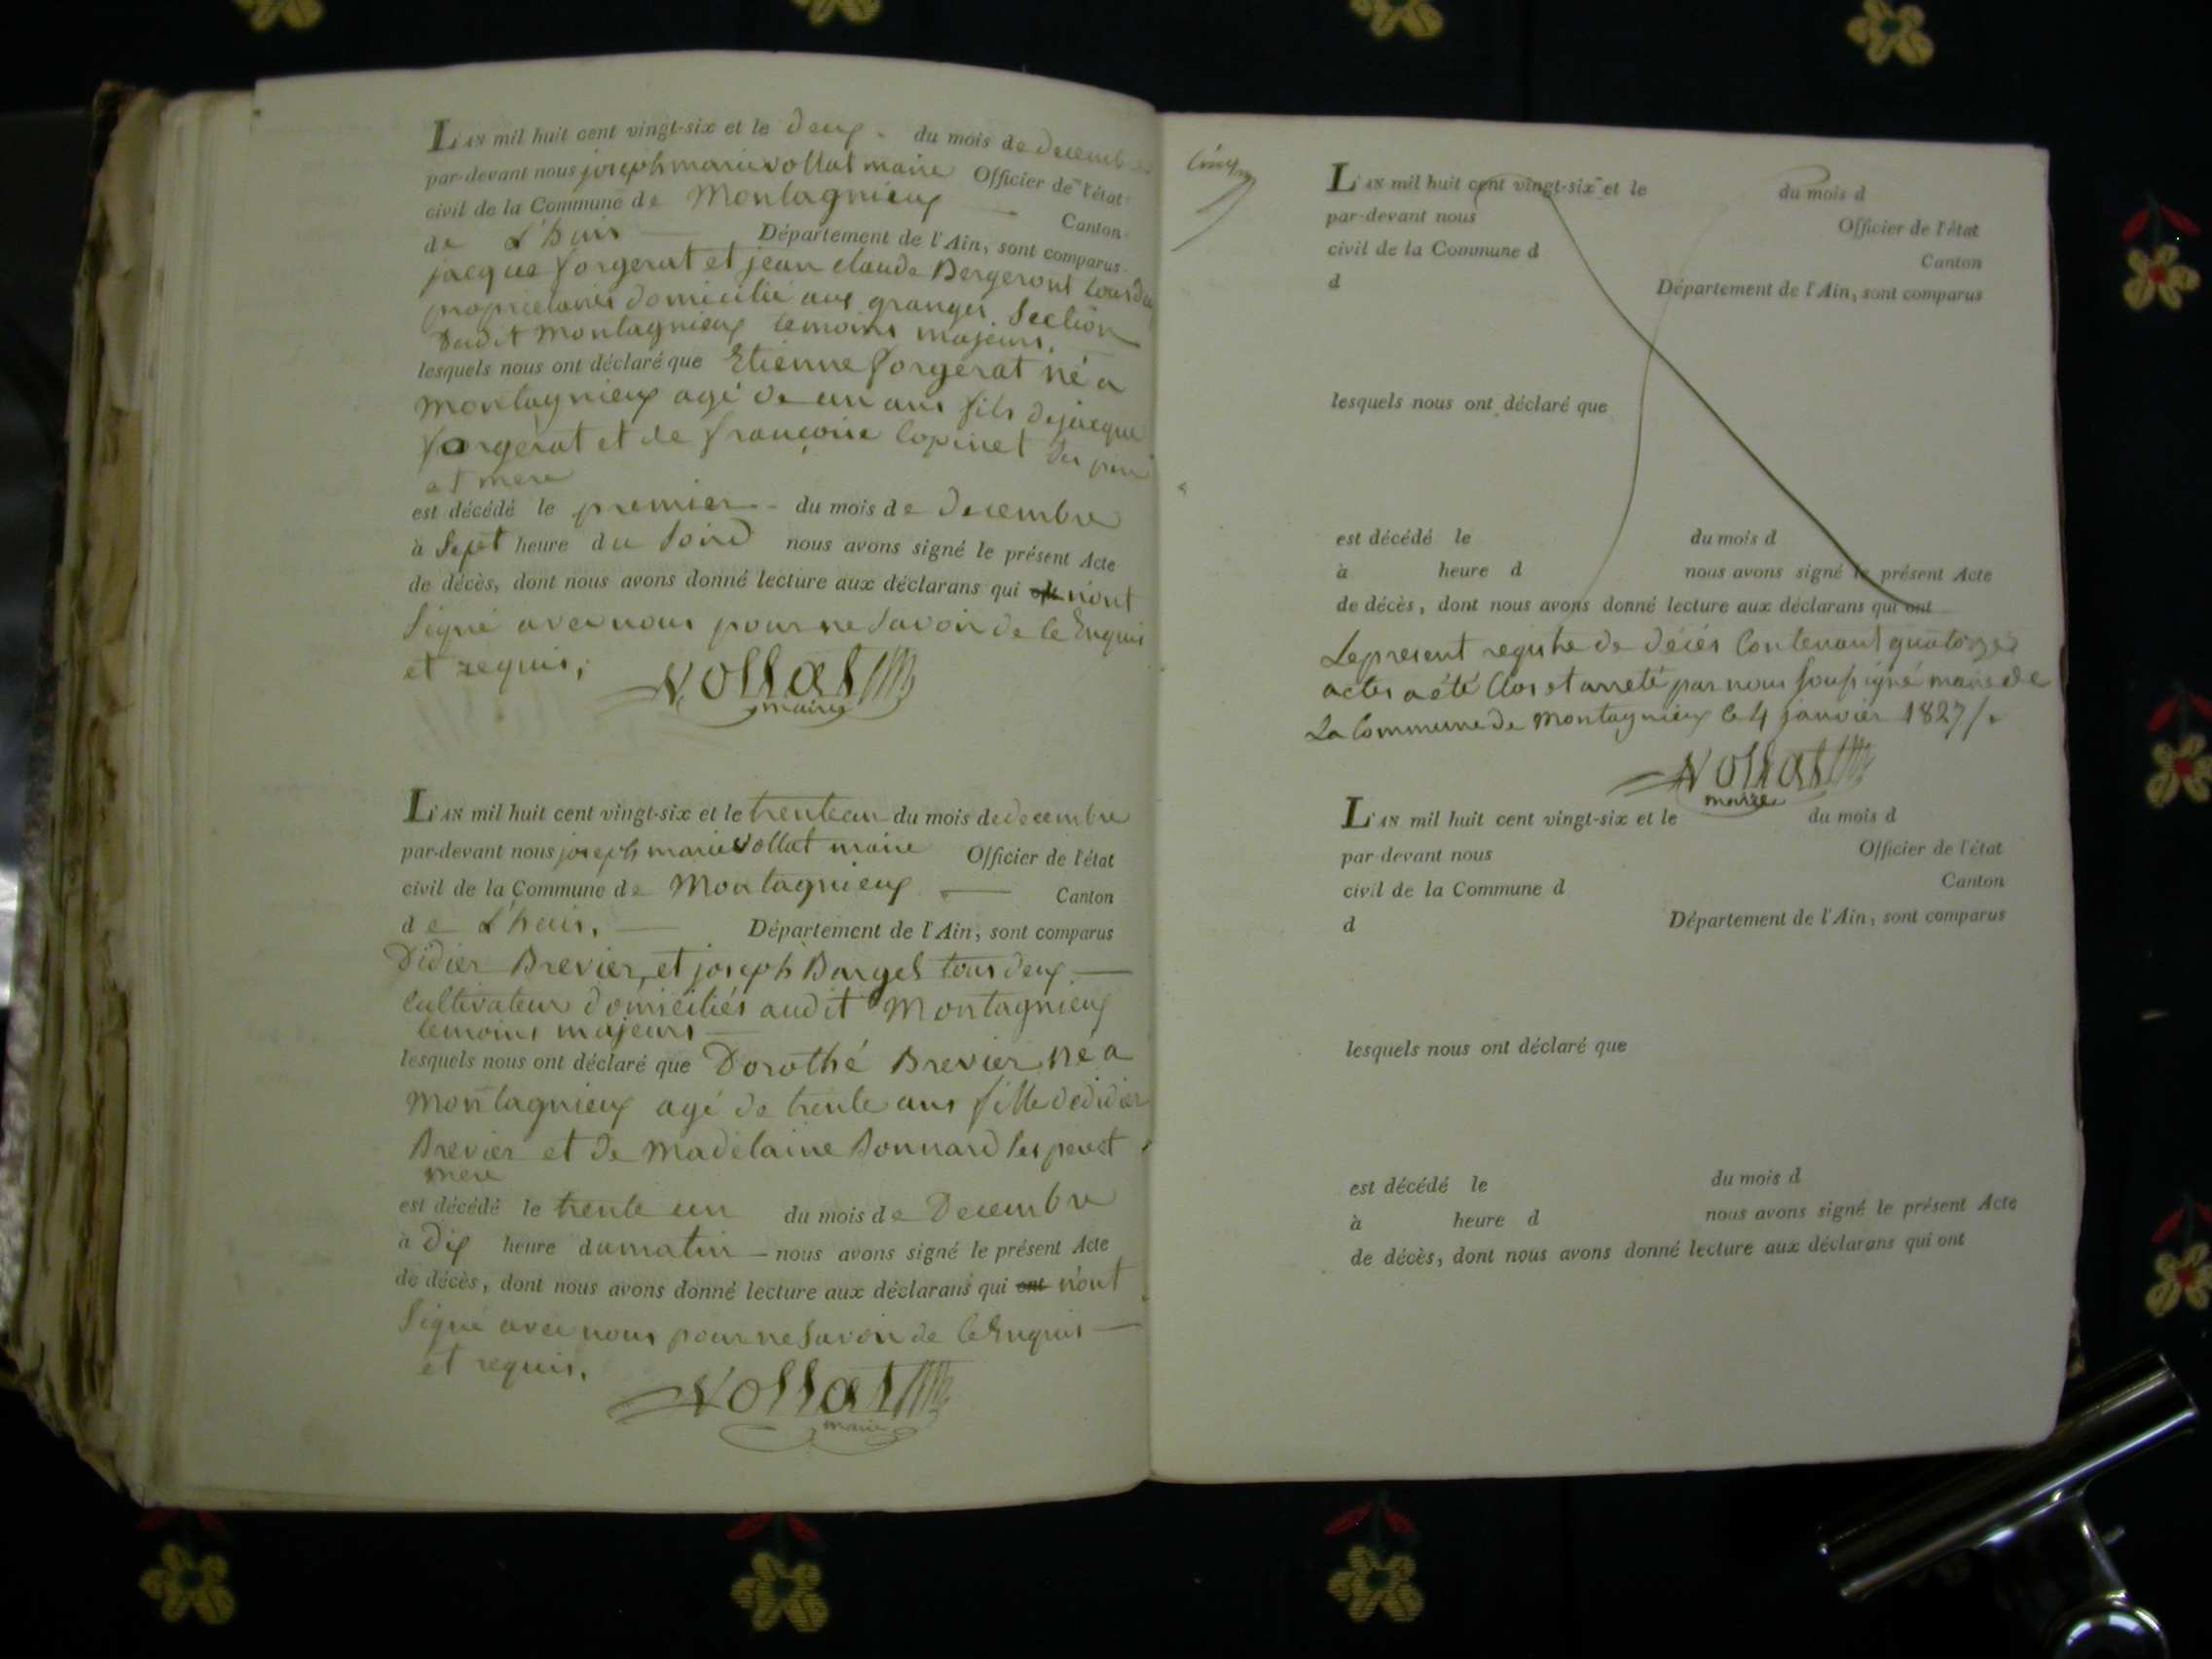 L'AN mil huit cent vingt-six et le deux du mois de decembre
par-devant nous joseph marie vollat maire Officier de l'état
civil de la Commune de Montagnieux Canton
de L'huis Département de l'Ain, sont comparus
jacque forgerat et jean claude Bergeront tous deux
proprietaires domicilié aux granges Section
dudit Montagnieux temoins majeurs.
lesquels nous ont déclaré que Etienne forgerat né a
Montagnieux agé de un ans fils de jacque
forgerat et de françoise Copinet
et mere
est décédé le premier du mois de decembre
à Sept heure du Soird nous avons signé le présent Acte
de décès, dont nous avons donné lecture aux déclarans qui n'ont
Signé avec nous pour ne Savoir de ce Enquis
et requis,
vollat
maire
L'AN mil huit cent vingt-six et le trenteun du mois de decembre
par-devant nous joseph marie vollat maire Officier de l'état
civil de la Commune de Montagnieux Canton
de L'huis, Département de l'Ain, sont comparus
Didier Brevier, et joseph tous deux
Cultivateur domiciliés audit Montagnieux
temoins majeurs
lesquels nous ont déclaré que Dorothé Brevier né a
Montagnieux agé de trente ans fille de didier
Brevier et de Madelaine Bonnard Ses pere et
mere
est décédé le trente un du mois de Decembre
à Dix heure du matin nous avons signé le présent Acte
de décès, dont nous avons donné lecture aux déclarans qui ont n'ont
Signé avec nous pour ne Savoir de ce Enquis
et requis,
vollat
maire
L'AN mil huit cent vingt-six et le du mois d
par-devant nous Officier de l'état
civil de la Commune d Canton
d Département de l'Ain, sont comparus
lesquels nous ont déclaré que
est décédé le du mois d
à heure d nous avons signé le présent Acte
de décès, dont nous avons donné lecture aux déclarans qui ont
Le present registre de décés Contenant quatorze
actes a été Clos et arreté par nous Soussigné maire de
La Commune de Montagnieux le 4 janvier 1827/.
vollat
maire
L'AN mil huit cent vingt-six et le du mois d
par devant nous Officier de l'état
civil de la Commune d Canton
d Département de l'Ain, sont comparus
lesquels nous ont déclaré que
est décédé le du mois d
à heure d nous avons signé le présent Acte
de décès, dont nous avons donné lecture aux déclarans qui ont